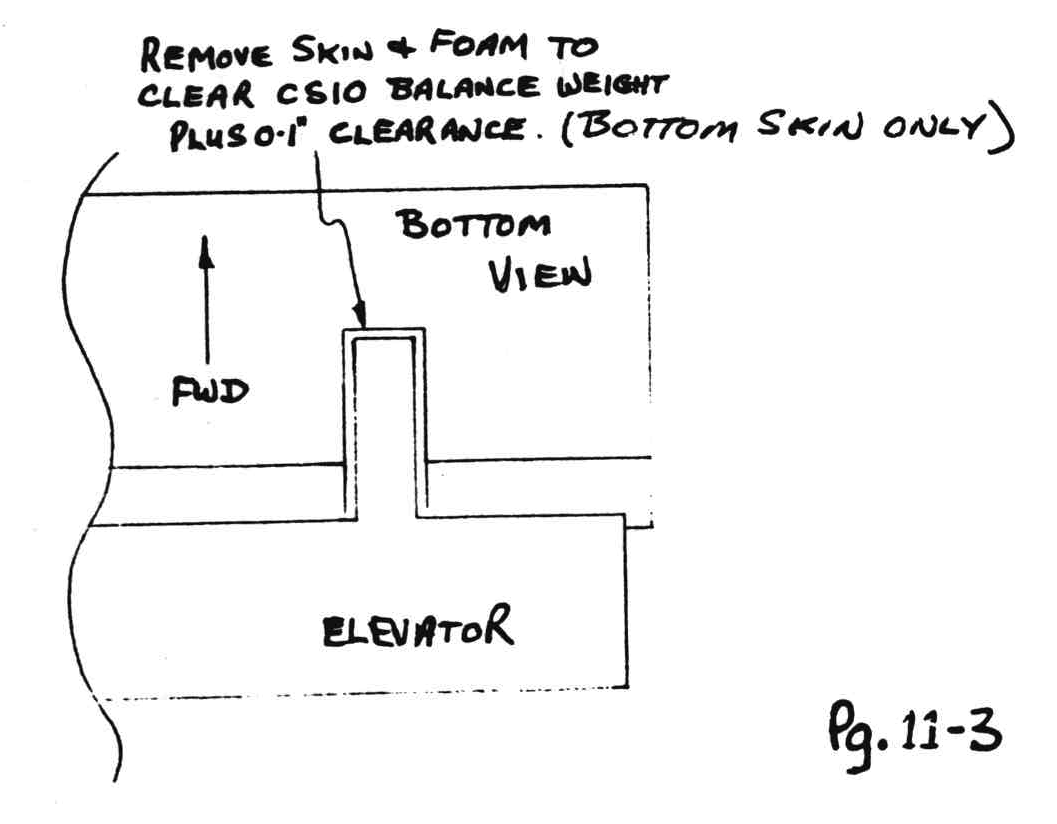 REMOVE SKIN & FOAM TO
CLEAR CS10 BALANCE WEIGHT
PLUS 0.1" CLEARANCE. (BOTTOM SKIN ONLY)
BOTTOM
VIEW
FWD
ELEVATOR
Pg. 11-3